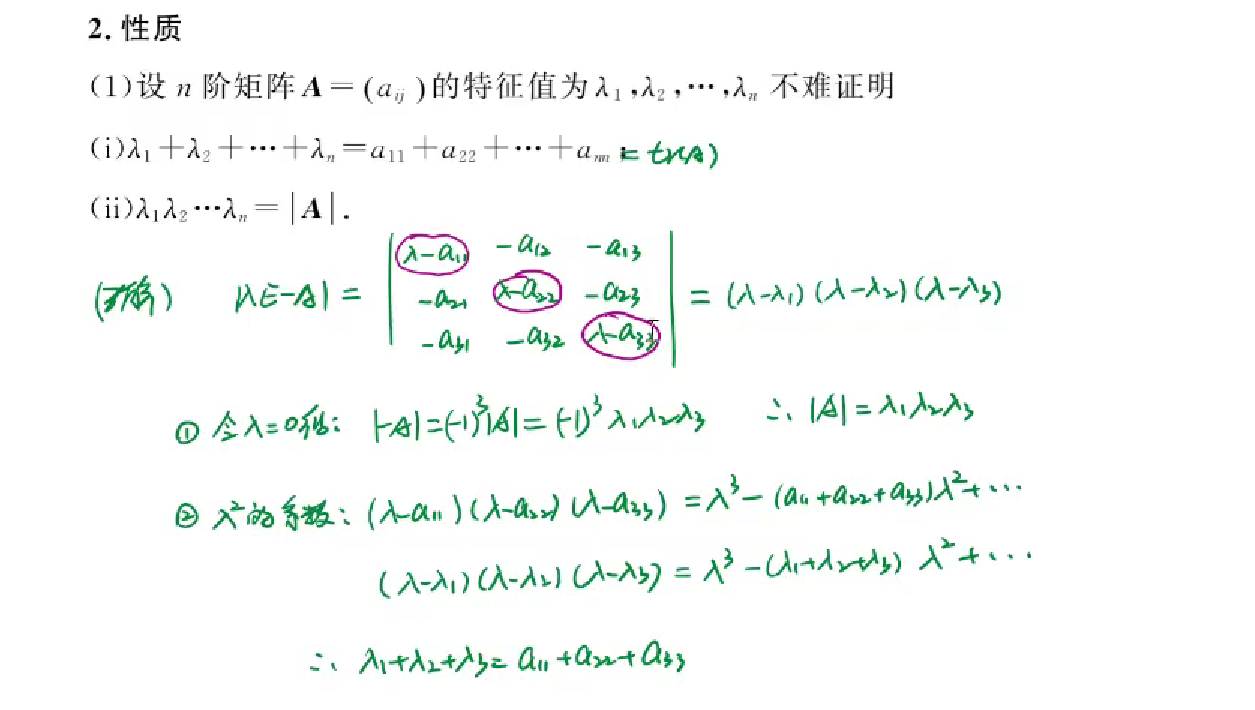 2. 性质
(1)设 n 阶矩阵 A = (aᵢⱼ) 的特征值为 λ₁,λ₂,⋯,λₙ 不难证明
(i)λ₁+λ₂+⋯+λₙ=a₁₁+a₂₂+⋯+aₙₙ = tr(A)
(ii)λ₁λ₂⋯λₙ=|A|.
|λE-A| = | λ-a₁₁ -a₁₂ -a₁₃ |
| -a₂₁ λ-a₂₂ -a₂₃ | = (λ-λ₁)(λ-λ₂)(λ-λ₃)
| -a₃₁ -a₃₂ λ-a₃₃ |
① 令λ=0得: |-A|=(-1)³|A|=(-1)³λ₁λ₂λ₃ ∴ |A|=λ₁λ₂λ₃
② λ²的系数: (λ-a₁₁)(λ-a₂₂)(λ-a₃₃) = λ³-(a₁₁+a₂₂+a₃₃)λ²+⋯
(λ-λ₁)(λ-λ₂)(λ-λ₃) = λ³-(λ₁+λ₂+λ₃)λ²+⋯
∴ λ₁+λ₂+λ₃=a₁₁+a₂₂+a₃₃